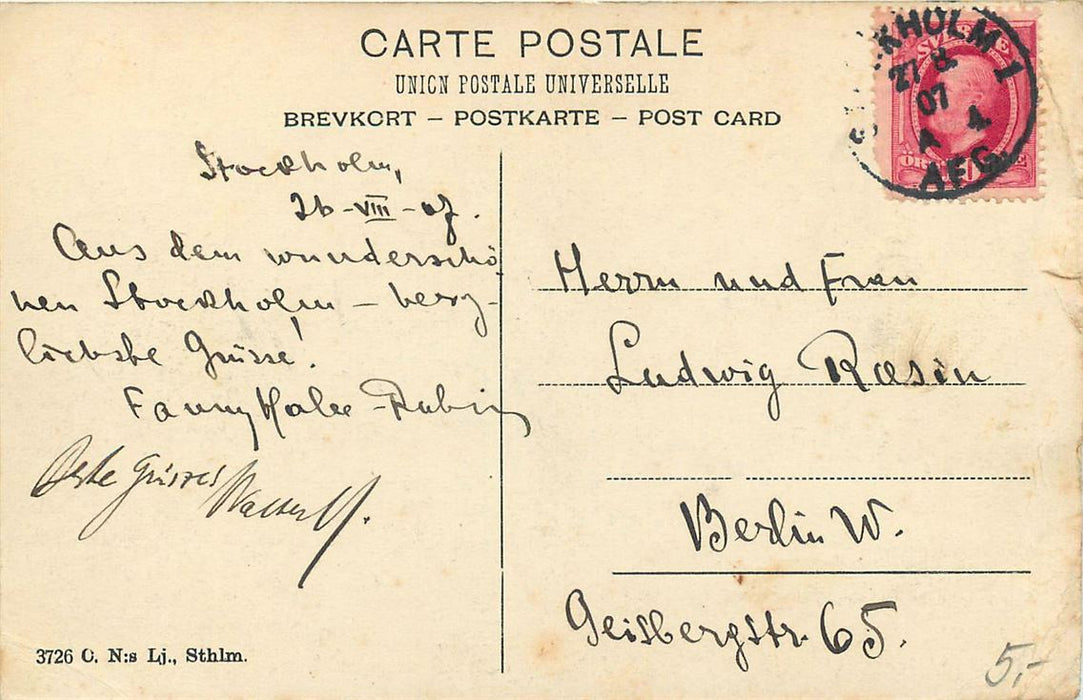 CARTE POSTALE
UNION POSTALE UNIVERSELLE
BREVKORT – POSTKARTE – POST CARD
KHOLM 1
27 8
07
A 4
AFG.
SVERIGE
ÖRE
Stockholm,
26-VIII-07.
Aus dem wunderschö
nen Stockholm – herz-
liebste Grüsse!
Fanny
Beste Grüsse
Herrn und Frau
Ludwig Rosin
Berlin W.
Geisbergstr. 65.
3726 C. N:s Lj., Sthlm.
5,-